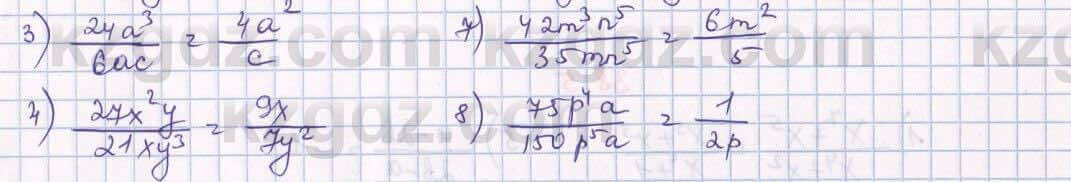 3) 24a³/6ac = 4a²/c
7) 42m³n⁵/35mn⁵ = 6m²/5
4) 27x²y/21xy³ = 9x/7y²
8) 75p⁴a/150p⁵a = 1/2p
kzgaz.com kzgaz.com kzgaz.com